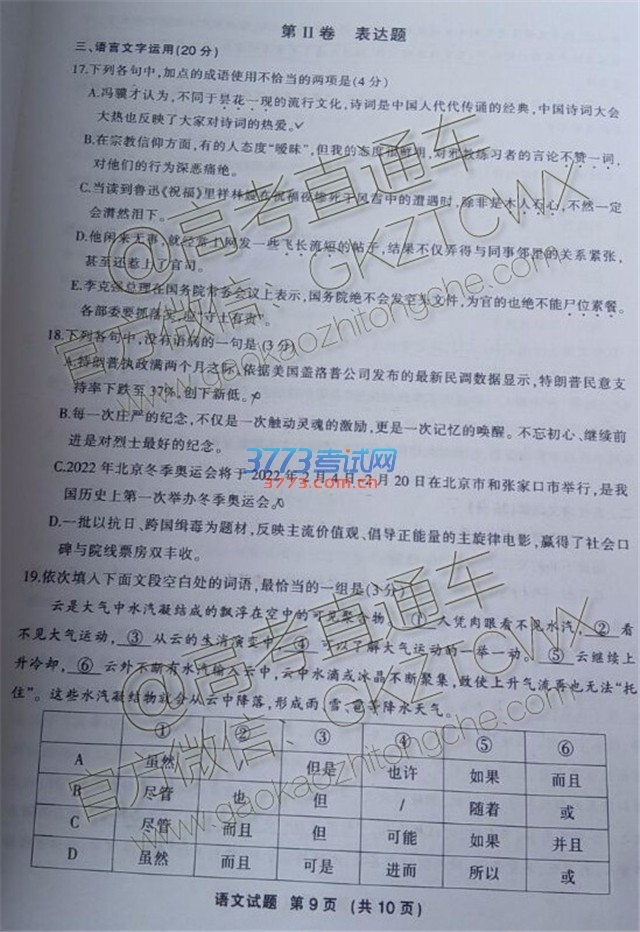 第 II 卷　表达题
三、语言文字运用(20 分)
17.下列各句中,加点的成语使用不恰当的两项是(4 分)
A.冯骥才认为,不同于昙花一现的流行文化,诗词是中国人代代传诵的经典,中国诗词大会
大热也反映了大家对诗词的热爱。
B.在宗教信仰方面,有的人态度“暧昧”,但我的态度很鲜明,对邪教练习者的言论不赞一词,
对他们的行为深恶痛绝。
C.当读到鲁迅《祝福》里祥林嫂在祝福夜惨死于风雪中的遭遇时,除非是木人石心,不然一定
会潸然泪下。
D.他闲来无事,就经常上网发一些飞长流短的帖子,结果不仅弄得与同事邻里的关系紧张,
甚至还惹上了官司。
E.李克强总理在国务院常务会议上表示,国务院绝不会发空头文件,为官的也绝不能尸位素餐。
各部委要抓落实,应“守土有责”。
18.下列各句中,没有语病的一句是(3 分)
A.特朗普执政满两个月之际,依据美国盖洛普公司发布的最新民调数据显示,特朗普民意支
持率下跌至 37%,创下新低。
B.每一次庄严的纪念,不仅是一次触动灵魂的激励,更是一次记忆的唤醒。不忘初心、继续前
进是对烈士最好的纪念。
C.2022 年北京冬季奥运会将于 2022 年 2 月 4 日-2 月 20 日在北京市和张家口市举行,是我
国历史上第一次举办冬季奥运会。
D.一批以抗日、跨国缉毒为题材,反映主流价值观、倡导正能量的主旋律电影,赢得了社会口
碑与院线票房双丰收。
19.依次填入下面文段空白处的词语,最恰当的一组是(3 分)
云是大气中水汽凝结成的飘浮在空中的可见聚合物。 ① 人凭肉眼看不见水汽, ② 看
不见大气运动, ③ 从云的生消演变中, ④ 可以了解大气运动的一举一动。 ⑤ 云继续上
升冷却, ⑥ 云外不断有水汽输入云中,云中水滴或冰晶不断聚集,致使上升气流再也无法“托
住”。这些水汽凝结物就会从云中降落,形成雨、雪、雹等降水天气。
① ② ③ ④ ⑤ ⑥
A 虽然 但是 也许 如果 而且
B 尽管 也 但 / 随着 或
C 尽管 而且 但 可能 如果 并且
D 虽然 而且 可是 进而 所以 或
语文试题　第 9 页　(共 10 页)
@高考直通车
GKZTCWX
官方微信
www.gaokaozhitongche.com
3773考试网
3773.com.cn
@高考直通车
GKZTCWX
官方微信
www.gaokaozhitongche.com